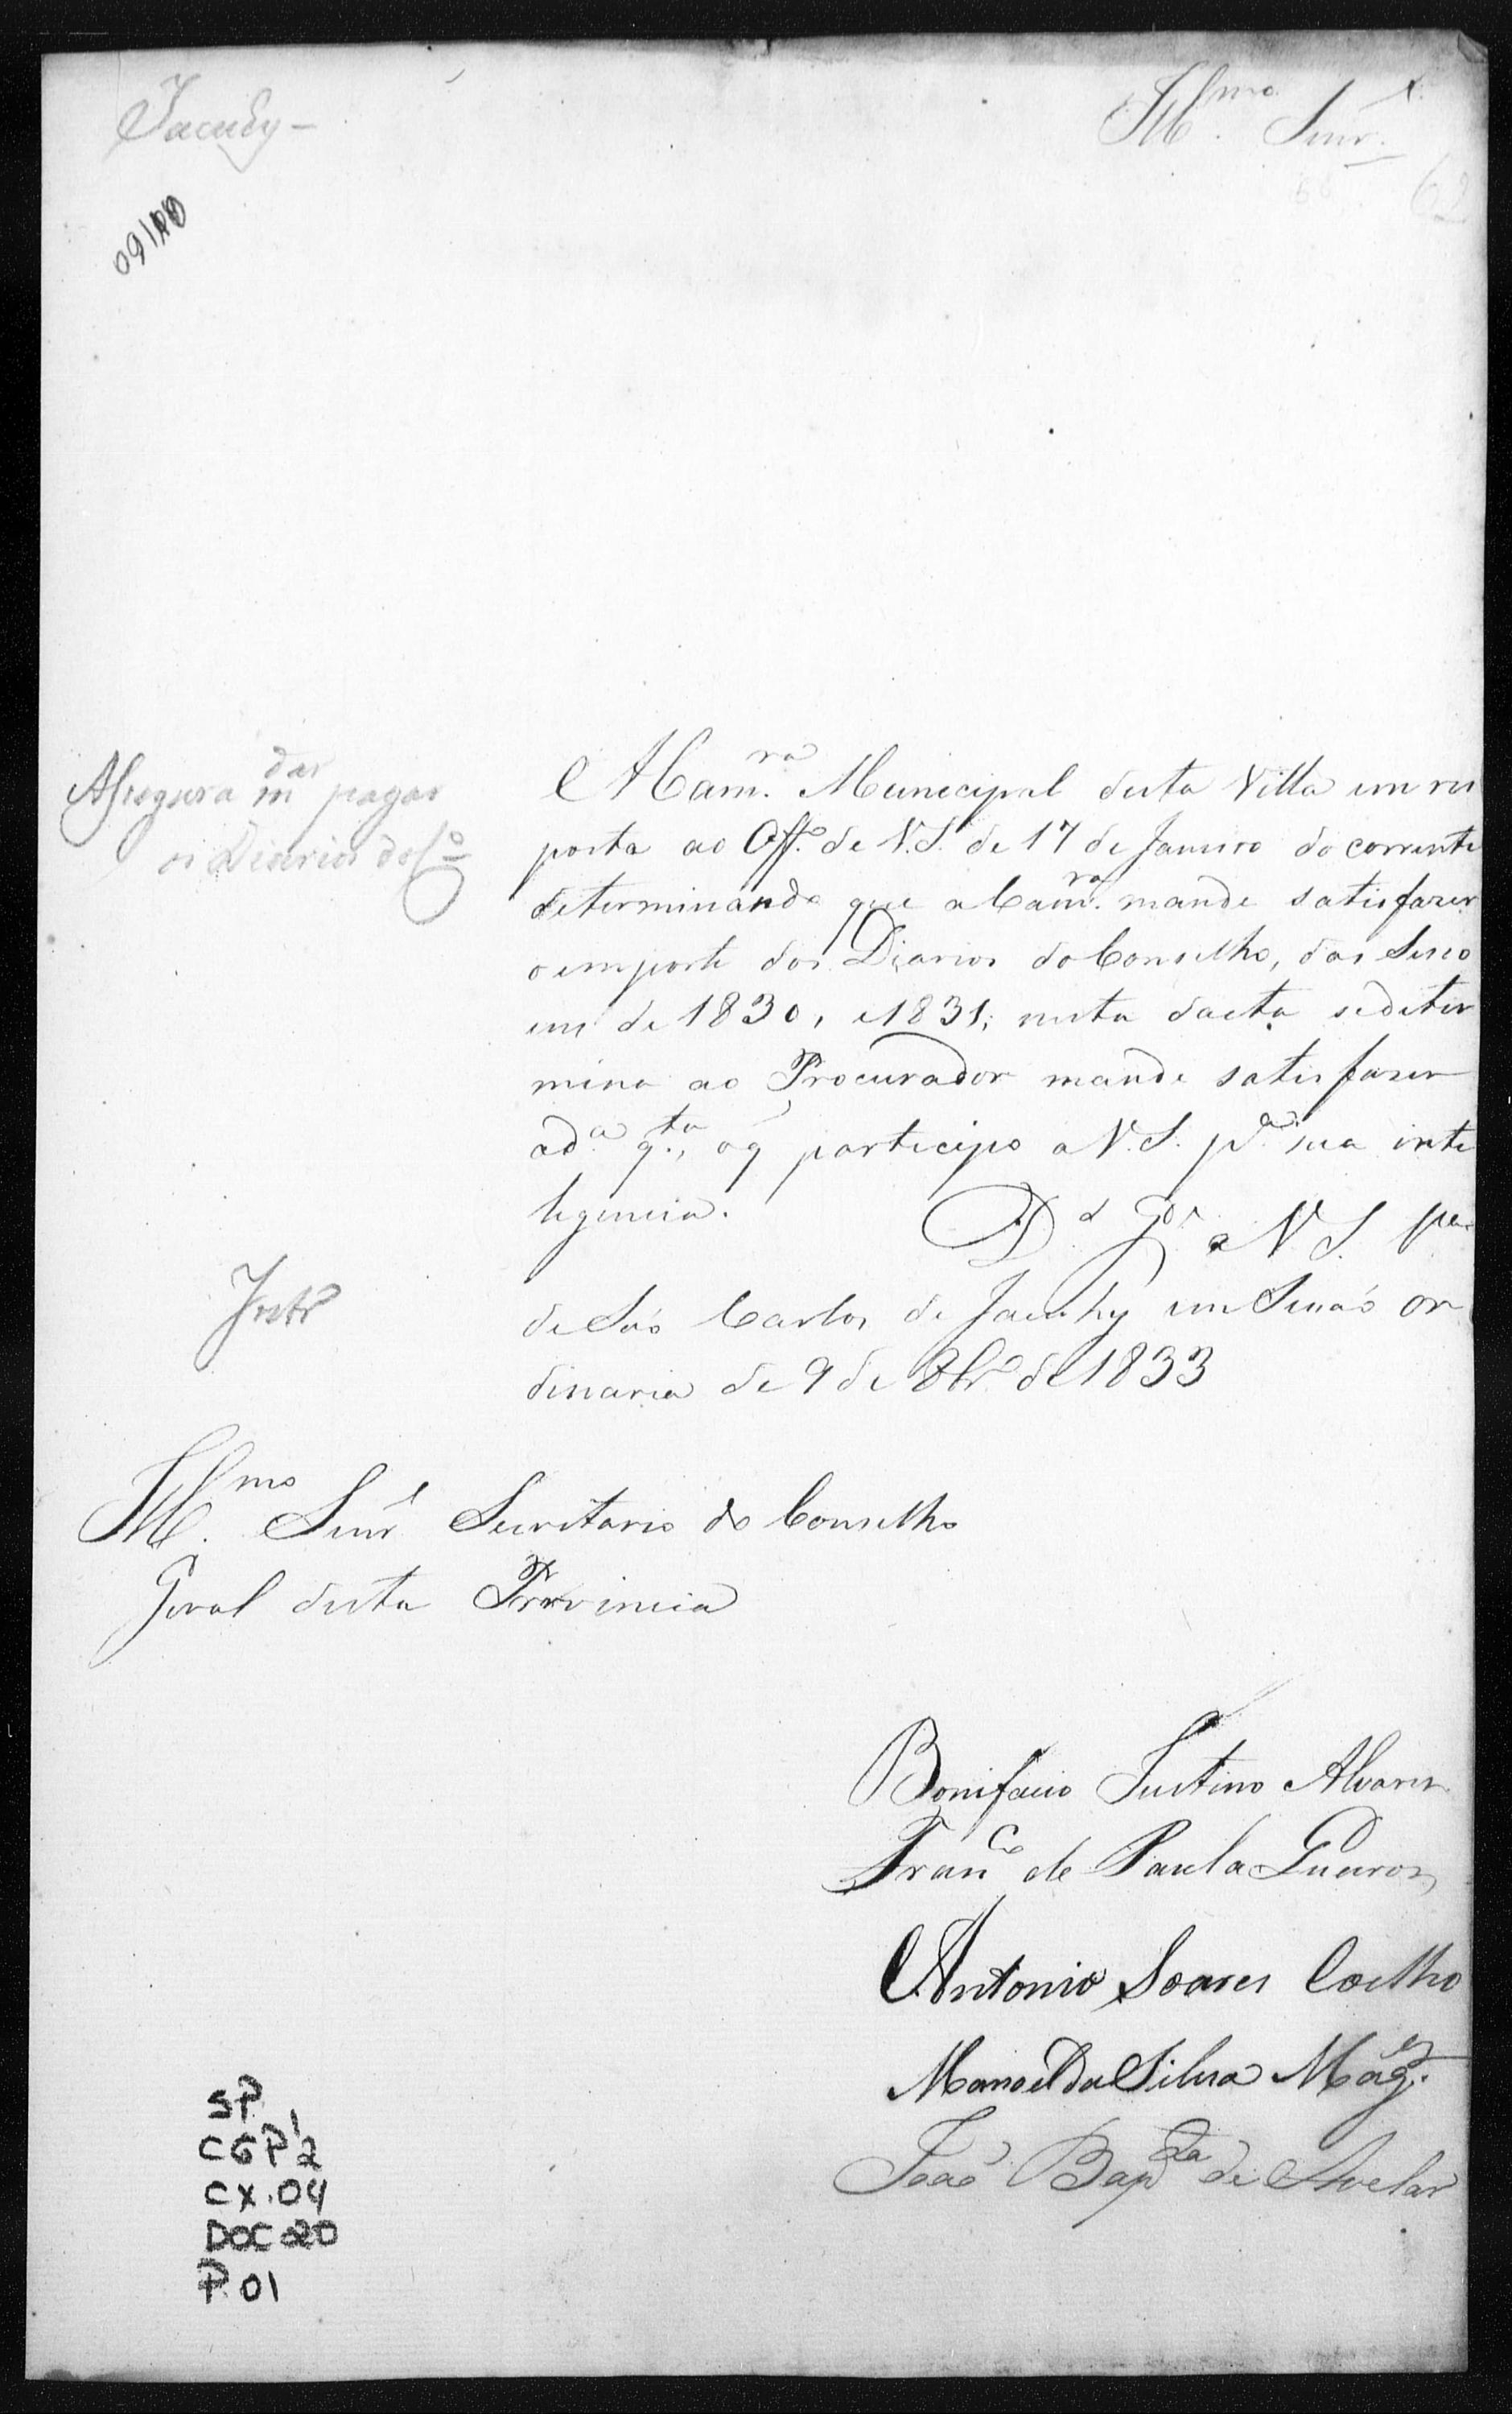 Jacuhy -
Illmo. Snr.
62
09/10
Assegura mdar pagar
os Diarios do Co
A Camra. Municipal desta Villa em res
posta ao Offo. de V.S. de 17 de Janeiro do corrente
determinando que a Camra. mande satisfazer
o emporte dos Diarios do Conselho, das Seçо
ens de 1830, e 1831; nesta dacta se deter
mina ao Procurador mande satisfazer
a da. qta., o q̃ participo a V.S. pa. sua inte
legencia. Ds. Gde. a V.S. Pa
ço de São Carlos de Jacuhy em Seçaõ or
dinaria de 9 de 8bro. de 1833
Illmo. Snr. Secretario do Conselho
Geral desta Provincia
Bonifacio Justino Alvares
Franco de Paula
Antonio Soares Coelho
Manoel da Silva Mages.
Joaõ Bapta de Avelar
SP
CGP 1/2
CX. 04
DOC 20
P. 01